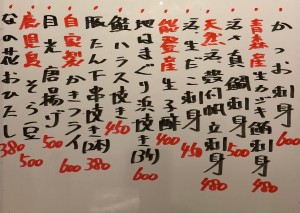 かつお刺身 600
青森産生カジキ鮪刺身 480
活〆真鯛刺身 500
天然活〆帆立刺身 480
活生だこ刺身 450
能登産生子酢 400
地はまぐり浜焼き(3ケ) 600
鮭ハラス焼き 450
豚たん下串焼き(2本) 380
自家製かきフライ 600
目光唐揚げ 500
鹿児島そら豆 500
なの花おひたし 380